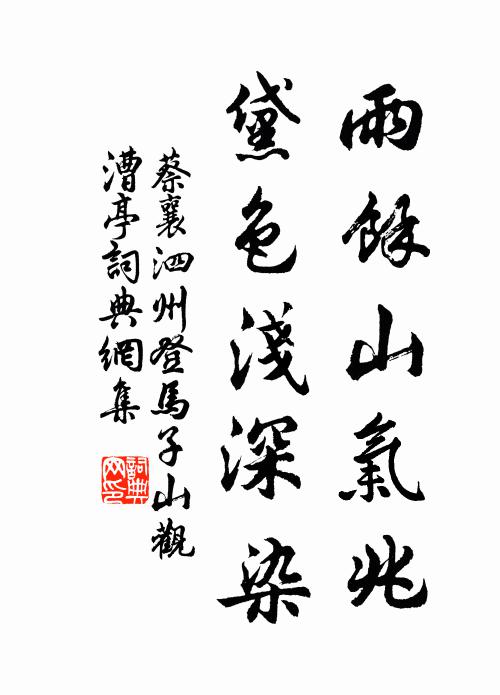 雨餘山氣
黛色淺深染
蔡襄泗州登馬子山觀
漕亭詞典網集
詞典
网印